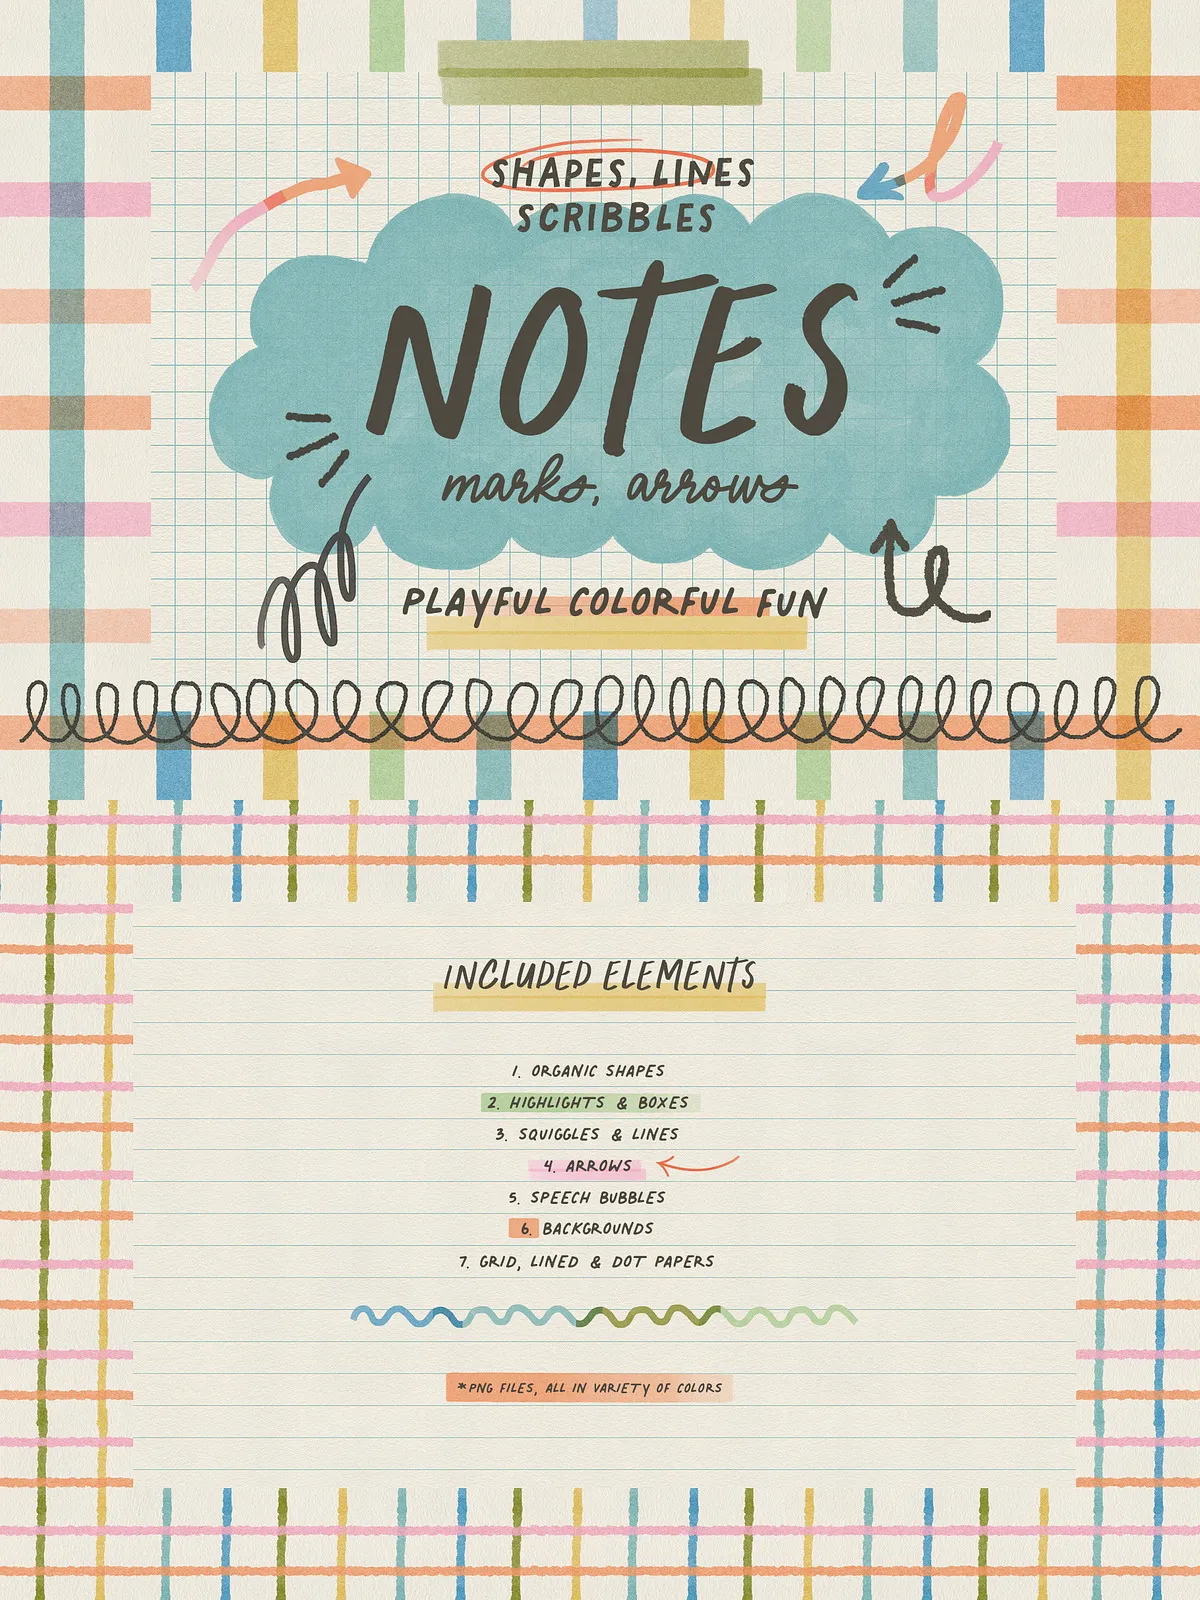 SHAPES, LINES
SCRIBBLES
NOTES
marks, arrows
PLAYFUL COLORFUL FUN
INCLUDED ELEMENTS
1. ORGANIC SHAPES
2. HIGHLIGHTS & BOXES
3. SQUIGGLES & LINES
4. ARROWS
5. SPEECH BUBBLES
6. BACKGROUNDS
7. GRID, LINED & DOT PAPERS
*PNG FILES, ALL IN VARIETY OF COLORS